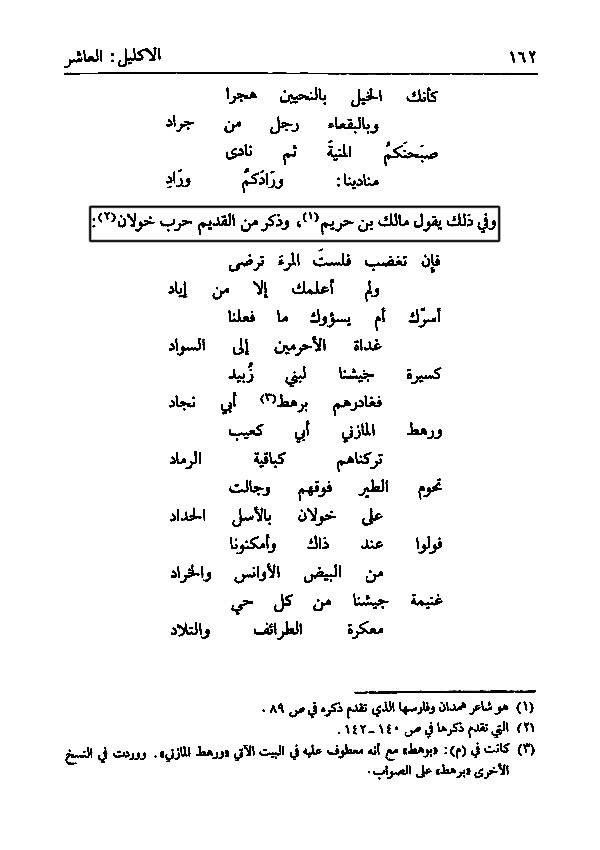 ١٦٢
الاكليل: العاشر
كأنك الخيل بالنحيين هجرا
وبالبقعاء رجل من جراد
صبَحتكمُ المنيةَ ثم نادى
منادينا: ورَادَكمُ ورَادِ
وفي ذلك يقول مالك بن حريم(١)، وذكر من القديم حرب خولان(٢):
فإن تغضب فلستَ المرءَ ترضى
ولم أعلمك إلا من إياد
أسرّك أم يسؤوك ما فعلنا
غداة الأحرمين إلى السواد
كسيرة جيشنا لبني زُبيد
فغادرهم برهط(٣) أبي نجاد
ورهط المازني أبي كعيب
تركناهم كباقية الرماد
تحوم الطير فوقهم وجالت
على خولان بالأسل الحداد
فولوا عند ذاك وأمكنونا
من البيض الأوانس والخراد
غنيمة جيشنا من كل حي
معكرة الطرائف والتلاد
(١) هو شاعر همدان وفارسها الذي تقدم ذكره في ص ٨٩.
(٢) التي تقدم ذكرها في ص ١٤٠-١٤٢.
(٣) كانت في (م): «بوهط» مع أنه معطوف عليه في البيت الآتي «ورهط المازني». ووردت في النسخ
الأخرى «برهط» على الصواب.